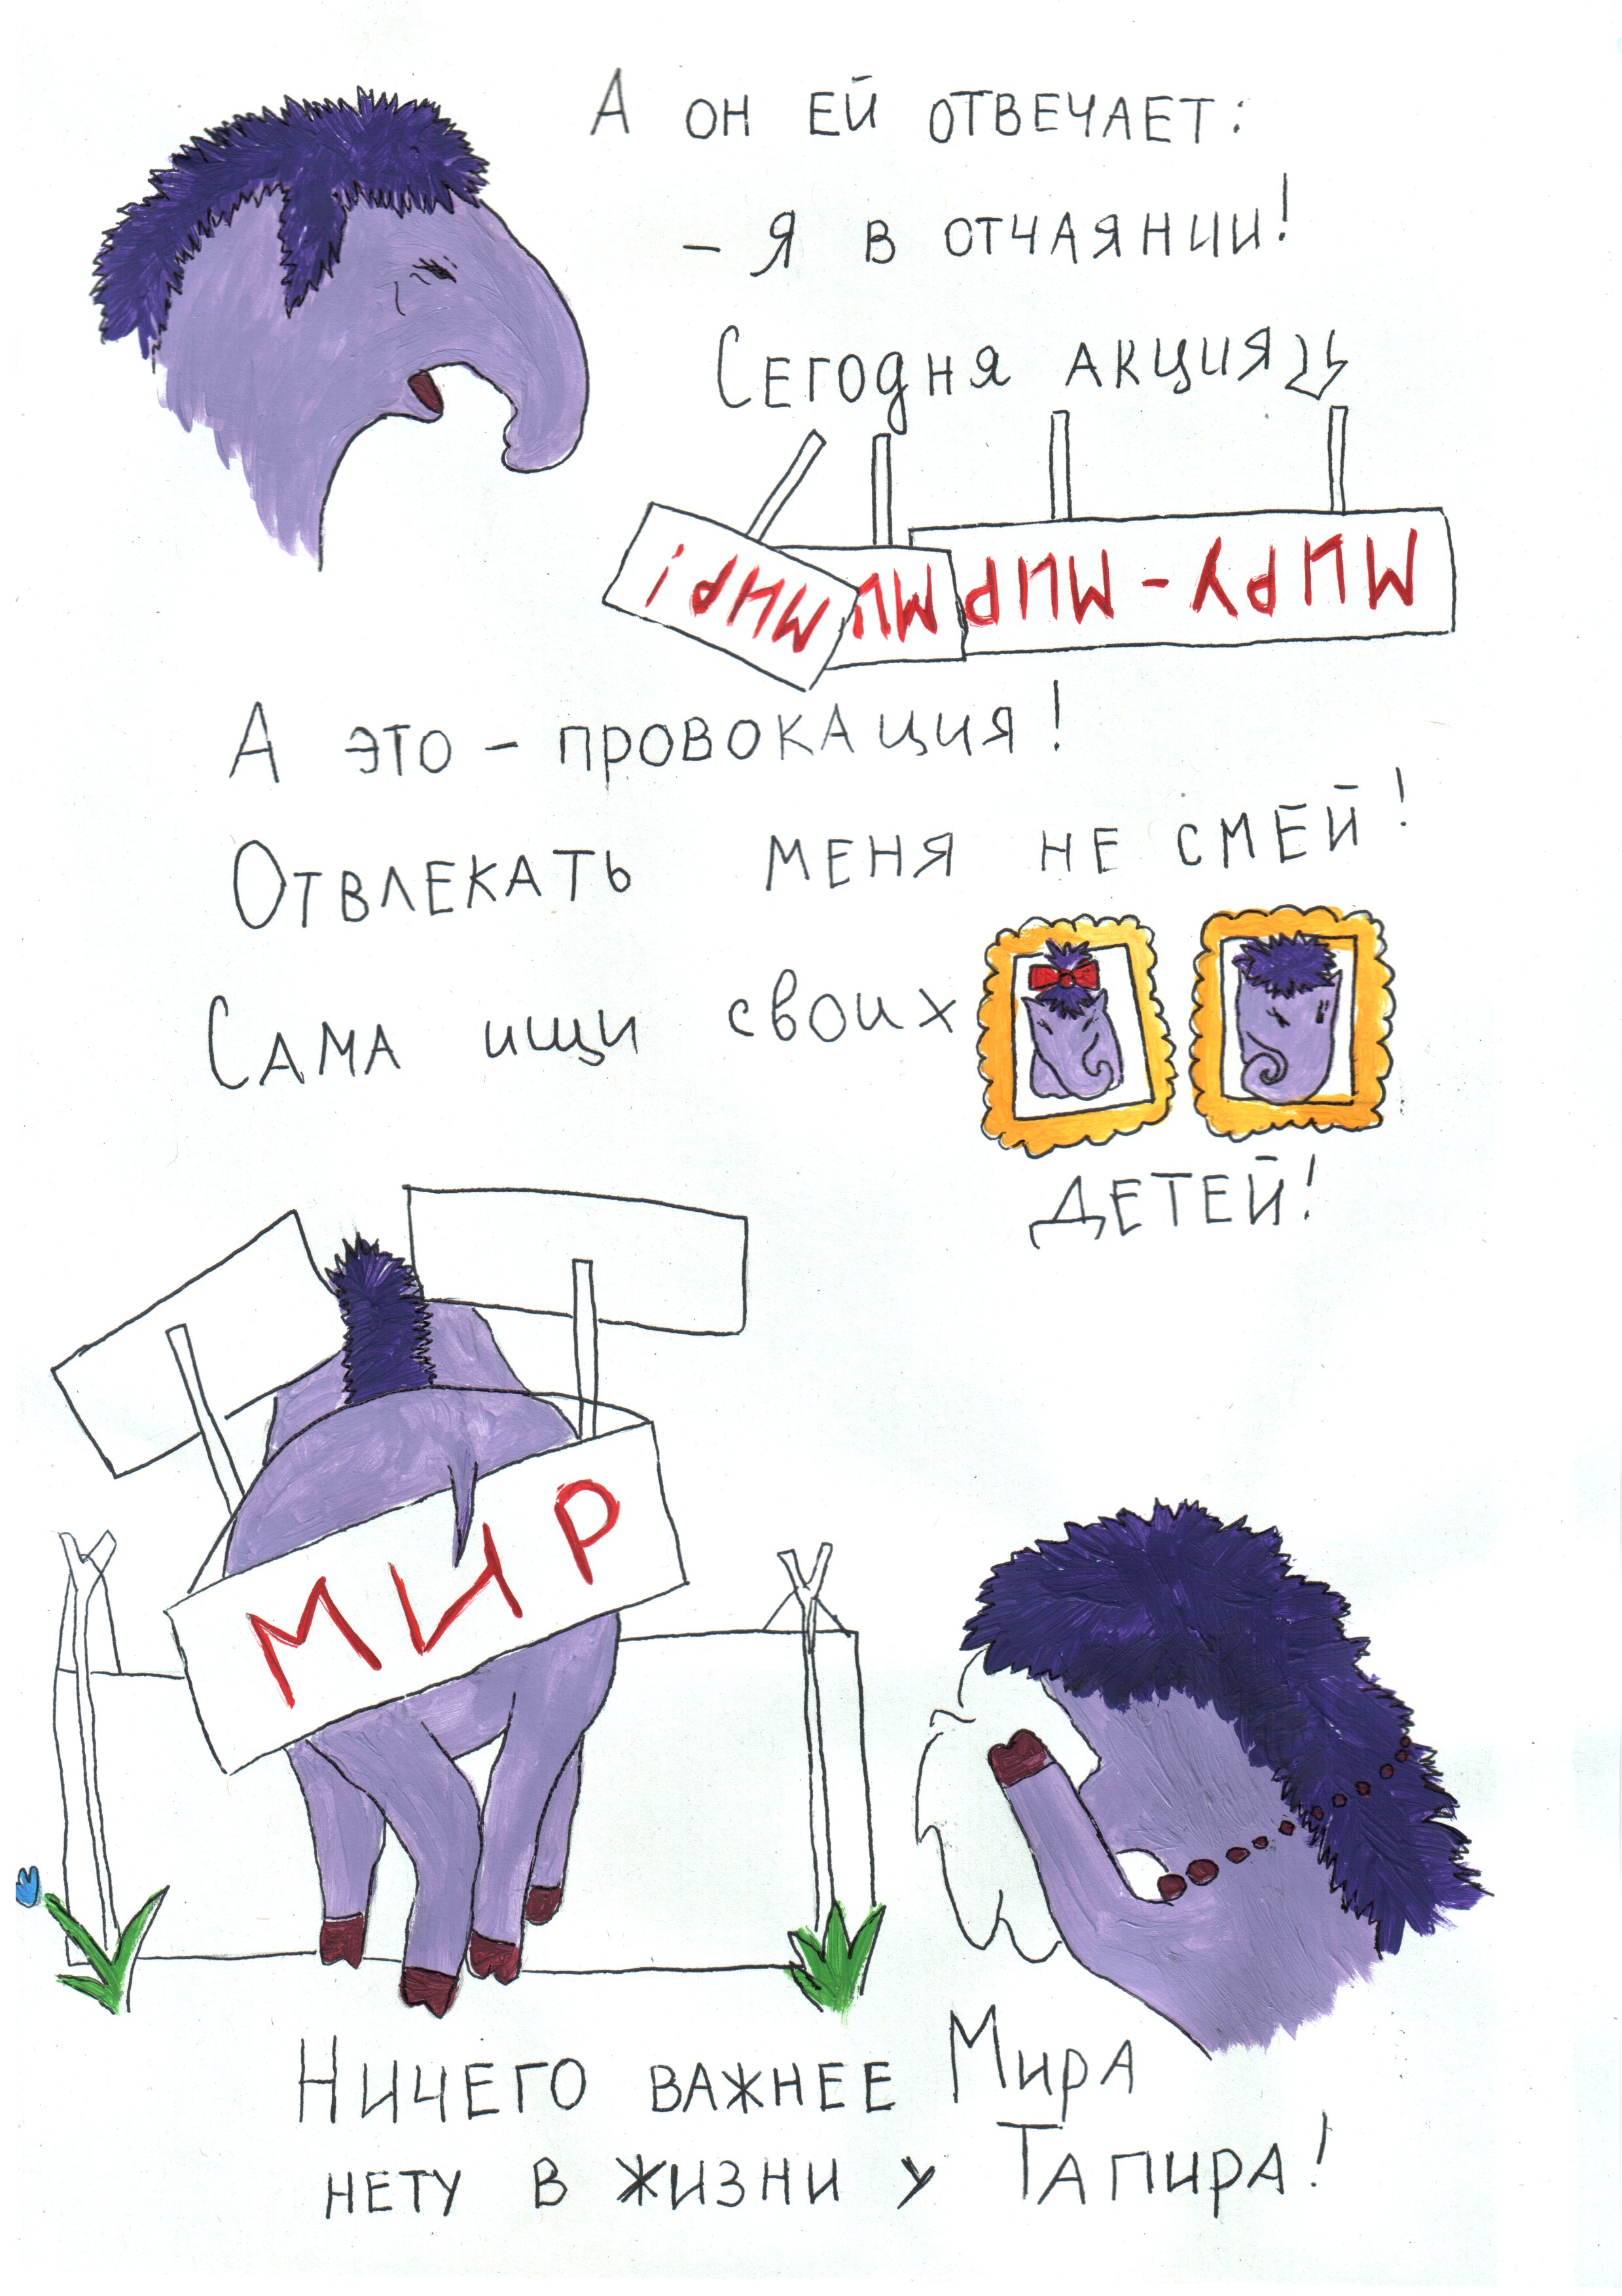 А ОН ЕЙ ОТВЕЧАЕТ:
- Я В ОТЧАЯНИИ!
СЕГОДНЯ АКЦИЯ
МИРУ-МИР
МИ
МИР!
А ЭТО - ПРОВОКАЦИЯ!
ОТВЛЕКАТЬ МЕНЯ НЕ СМЕЙ!
САМА ИЩИ СВОИХ
ДЕТЕЙ!
МИР
НИЧЕГО ВАЖНЕЕ МИРА
НЕТУ В ЖИЗНИ У ТАПИРА!